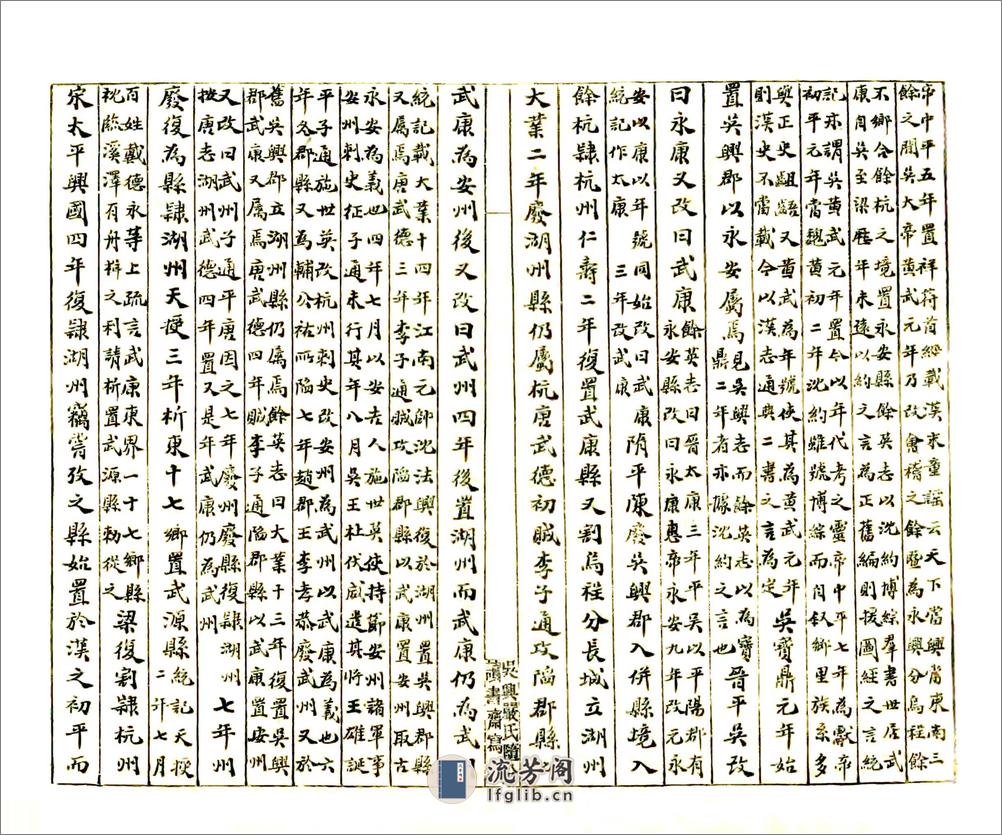 帝中平五年置祥符圖經載漢末童謡云天下當興者東南三
餘之間吳大帝黄武元年乃改㑹稽之餘暨為永興分烏程餘
不鄉合餘杭之境置永安縣餘英志以沈約博綜羣書世居武
康自吳至梁歷年未遠以約之言為正舊編則援圖經之言統
記亦謂吳黄武元年置今以年代考之靈帝中平七年為獻帝
初平元年當魏黄初二年沈約雖號博綜而自叙鄉里族系多
與正史齟齬又黄武為年號使其為黄武元年
則漢史不當載今以漢志通典二書之言為定
吳寶鼎元年始
置吳興郡以永安屬焉
見吳興志而餘英志以為寶
鼎二年者亦據沈約之言也
晉平吳改
曰永康又改曰武康
餘英志曰晉太康三年平吳以平陽郡有
永安縣改曰永康惠帝永安九年改元永
安以康以年號同始改曰武康
統記作太康三年改武康
隋平陳廢吳興郡入併縣境入
餘杭隸杭州仁壽二年復置武康縣又割烏程分長城立湖州
大業二年廢湖州縣仍屬杭唐武德初賊李子通攻陷郡縣以
吳興嚴氏隨
寘書齋寫
武康為安州後又改曰武州四年後置湖州而武康仍為武州
統記載大業十四年江南元帥沈法興復於湖州置吳興郡縣
又屬焉唐武德三年李子通賊攻陷郡縣以武康置安州取古
永安為義也四年七月以安吉人施世英使持節安州諸軍事
安州刺史征子通未行其年八月吳王杜伏威遣其將王雄誕
平子通施世英改杭州刺史改安州為武州以武康為義也六
年又郡縣又為輔公祏所陷七年趙郡王李孝恭廢武州又於
舊吳興郡立湖州縣仍屬焉餘英志曰大業十三年復置吳興
郡武康又屬焉唐武德四年賊李子通陷郡縣以武康置安州
又改曰武州子通平唐因之七年廢州廢縣復隸湖州
按唐志湖州武德四年置又是年武康仍為武州
七年州
廢復為縣隸湖州天授三年析東十七鄉置武源縣
統記天授
二年七月
百姓戴德永等上疏言武康東界一十七鄉縣
枕臨溪澤有舟楫之利請析置武源縣勅從之
梁復割隸杭州
宋太平興國四年復隸湖州竊嘗攷之縣始置於漢之初平而
流芳阁
lfglib.cn